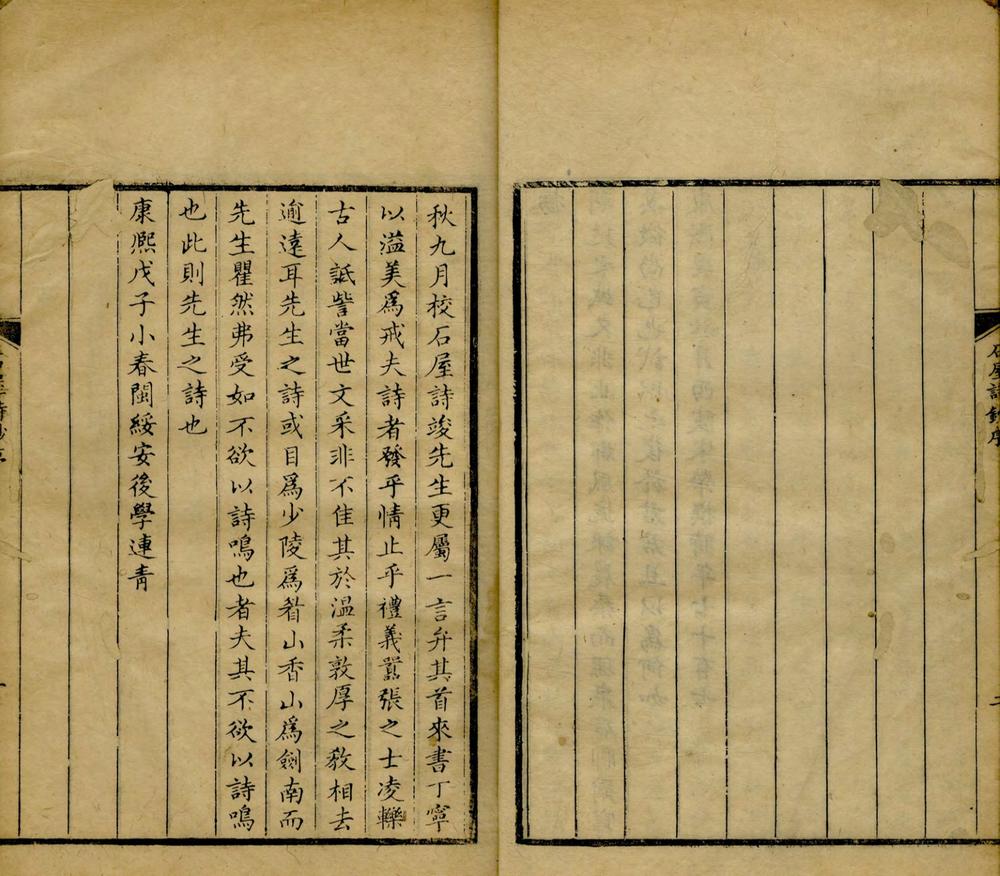 石屋詩鈔序
二
秋九月校石屋詩竣先生更屬一言弁其首來書丁寧
以溢美爲戒夫詩者發乎情止乎禮義囂張之士凌轢
古人詆訾當世文采非不佳其於溫柔敦厚之教相去
逾遠耳先生之詩或目爲少陵爲眉山香山爲劍南而
先生瞿然弗受如不欲以詩鳴也者夫其不欲以詩鳴
也此則先生之詩也
康熈戊子小春閩綏安後學連青
石屋詩鈔序
一